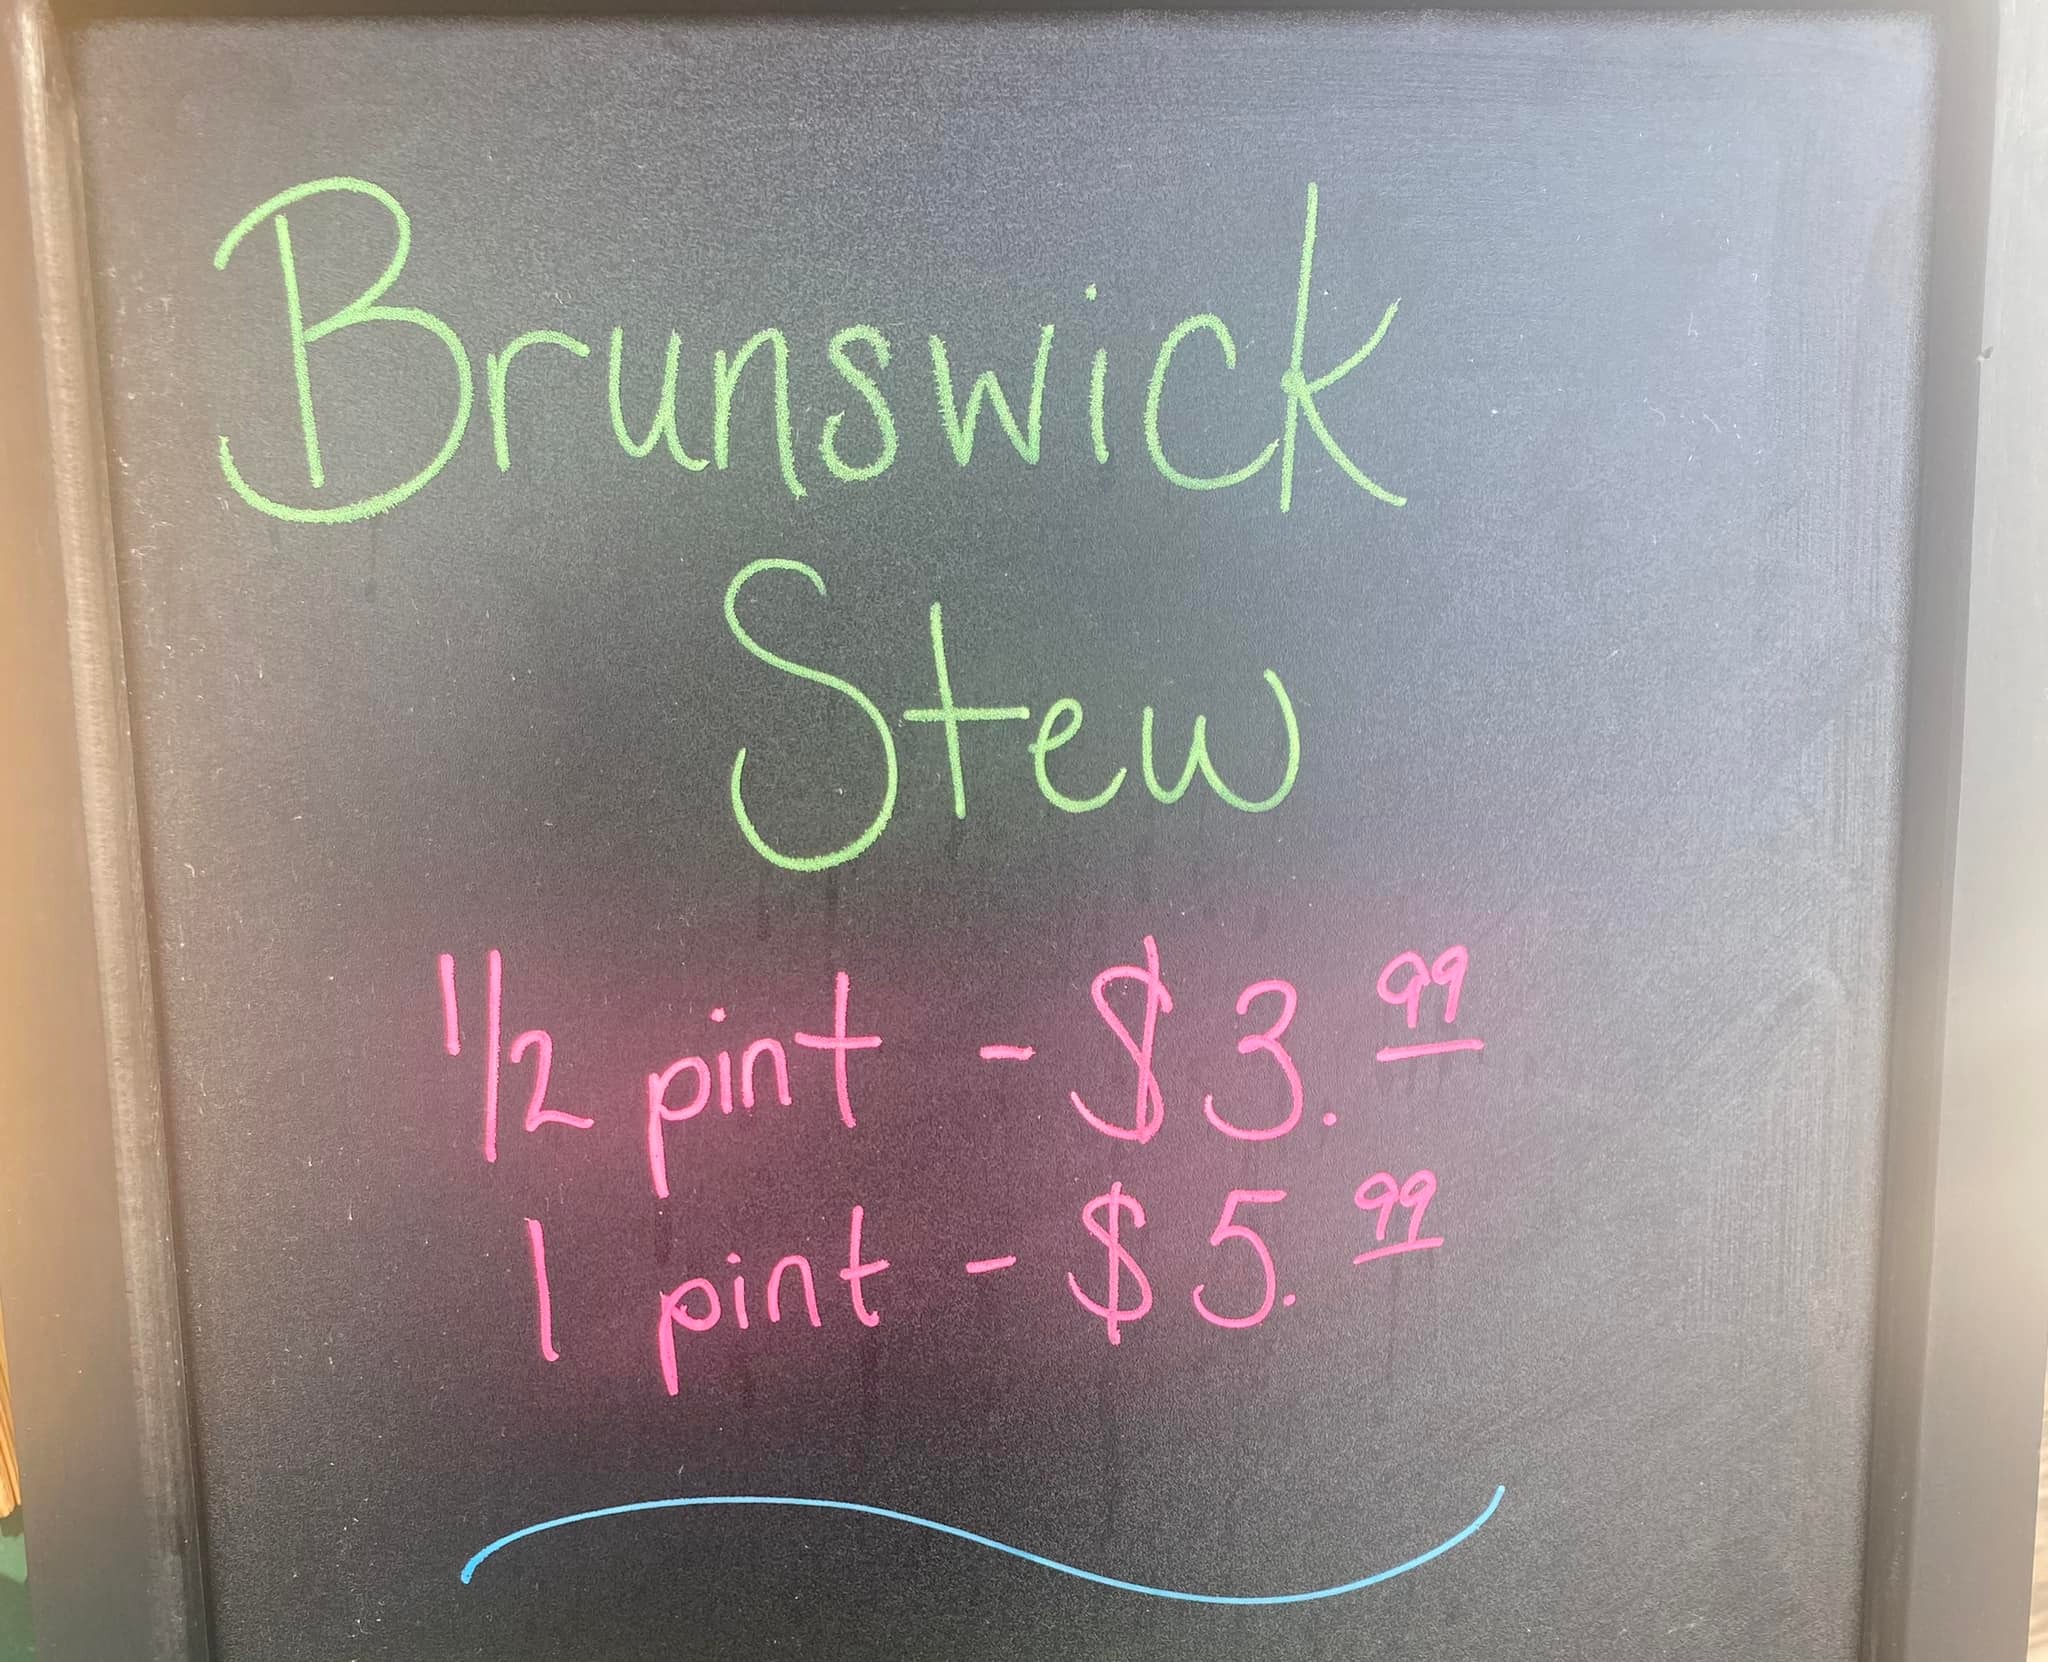 Brunswick
Stew
1/2 pint - $3.99
1 pint - $5.99